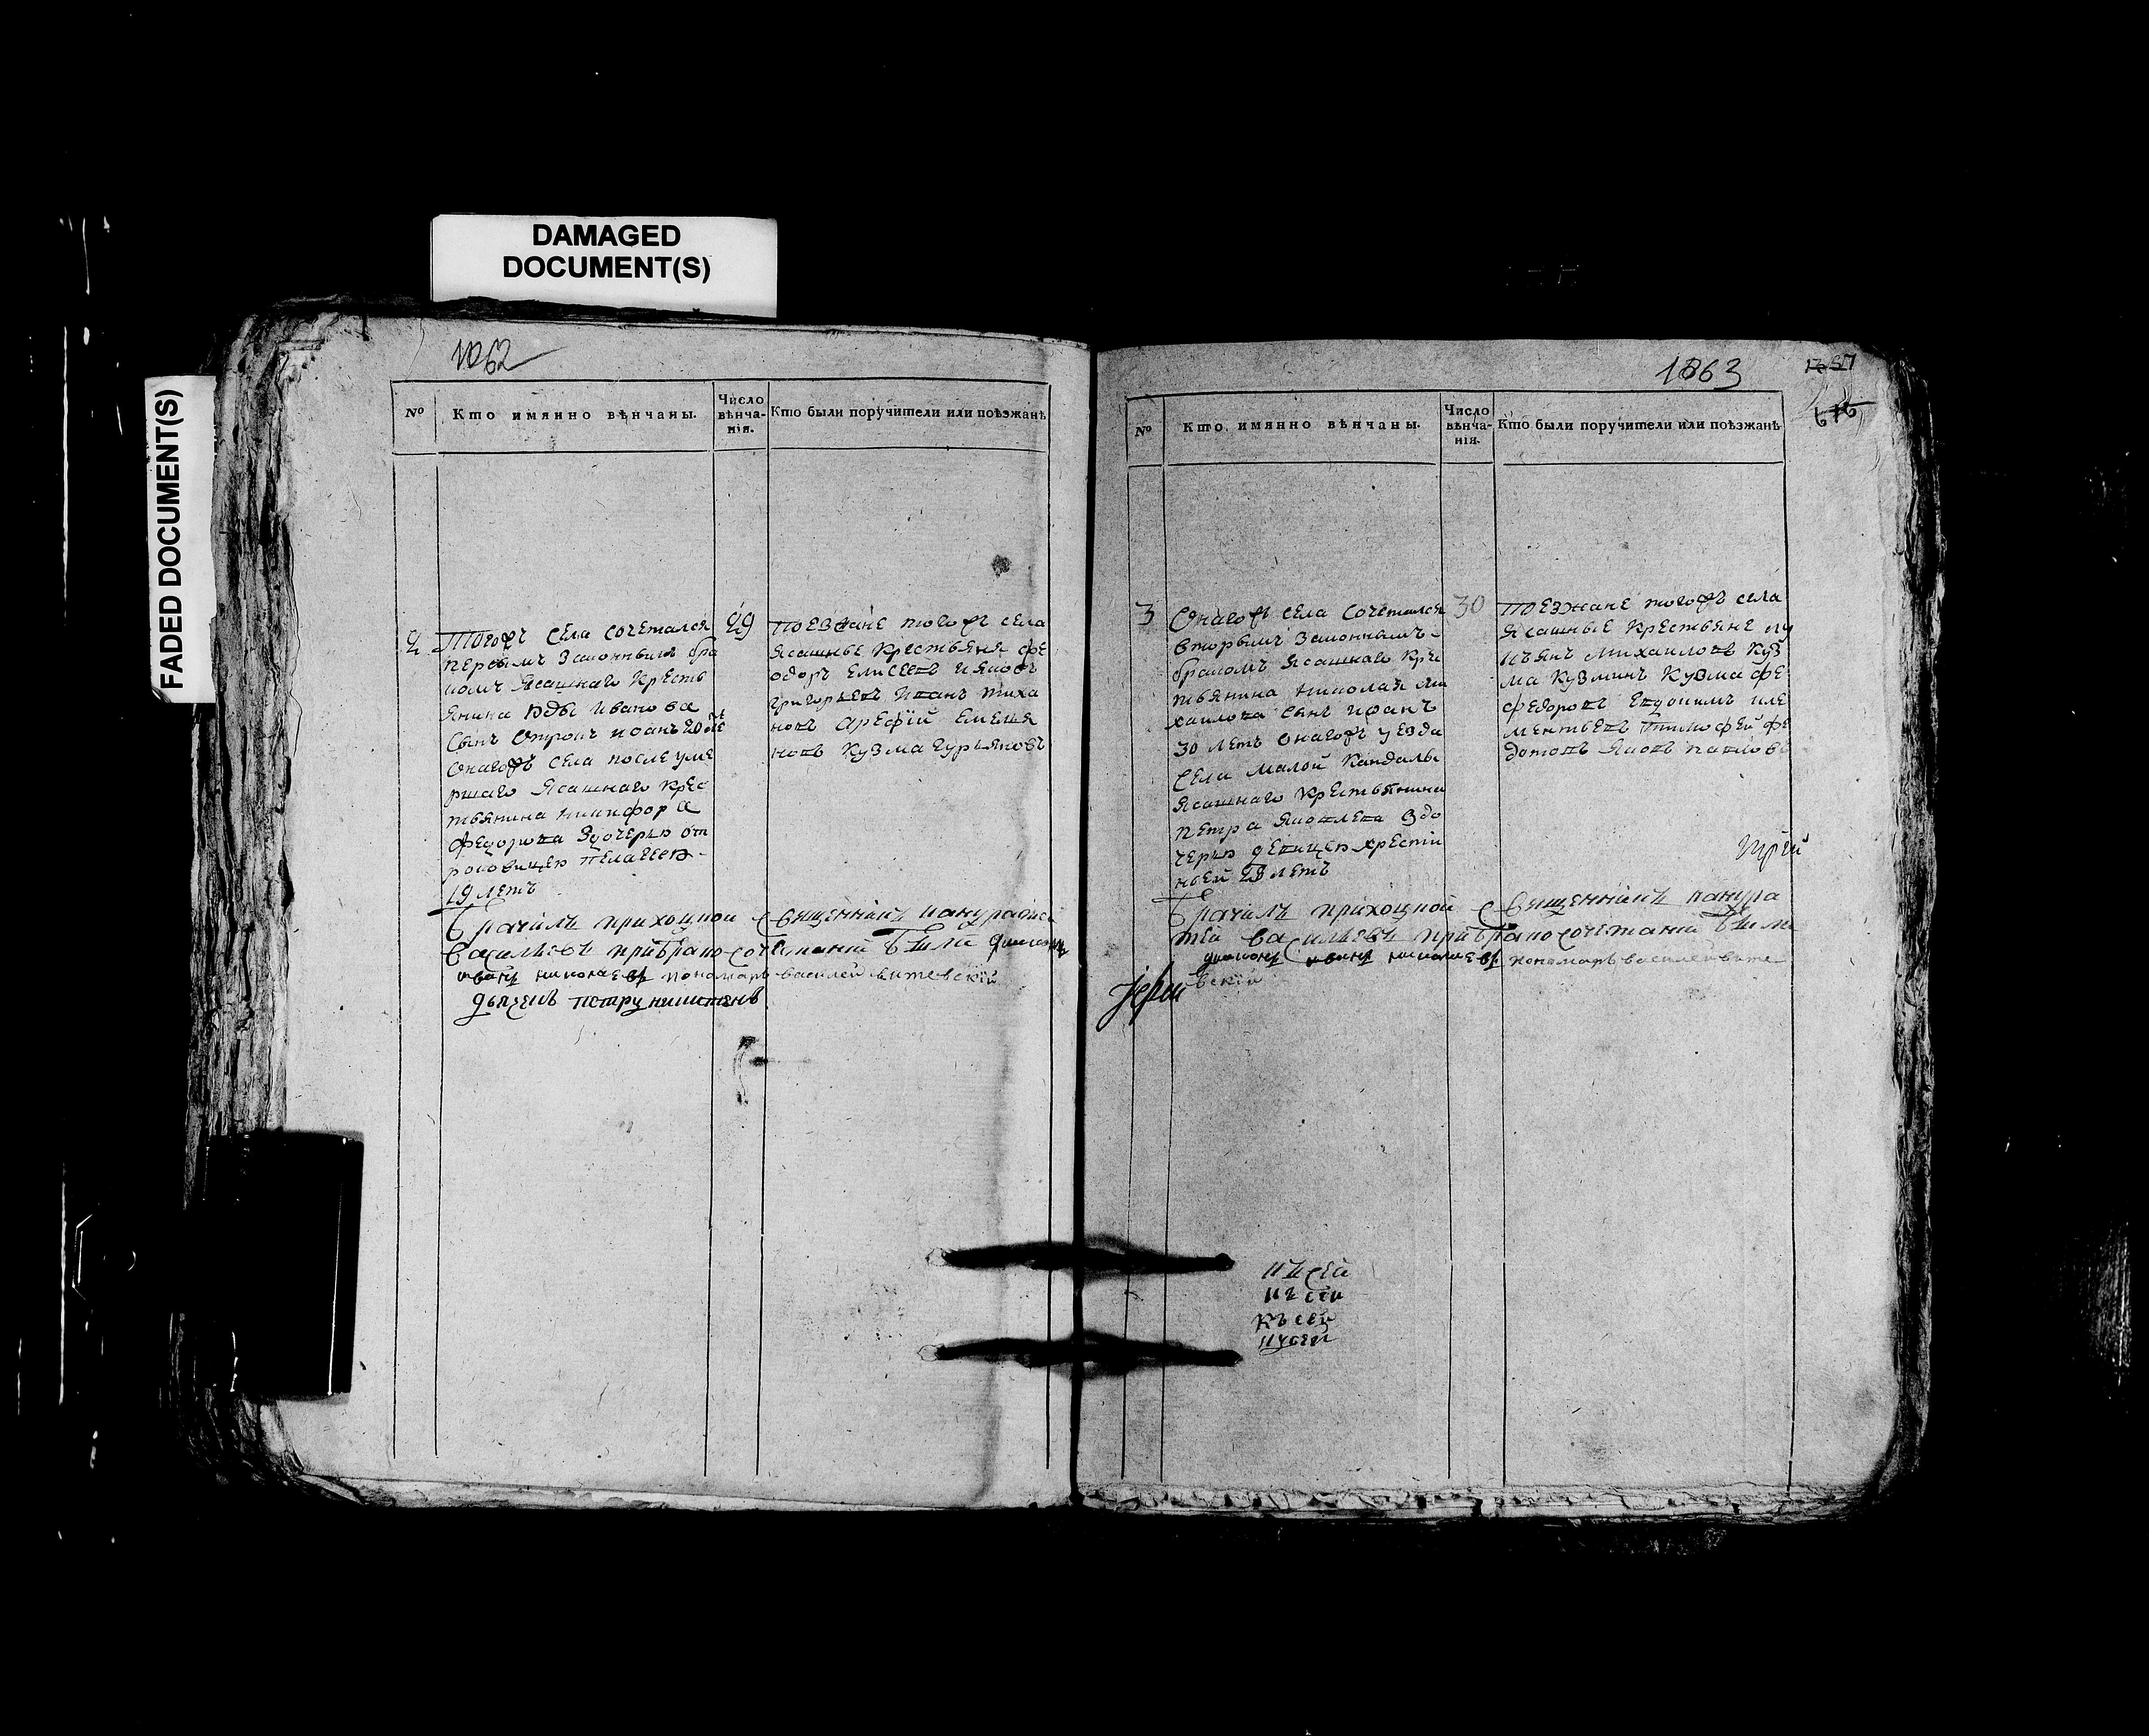 DAMAGED
DOCUMENT(S)
FADED DOCUMENT(S)
1062
№ Кто имянно вѣнчаны. Число вѣнчанія. Кто были поручители или поѣзжанѣ
2 Тогожъ села сочетался 29
первымъ законнымъ бра
комъ ясашнаго кресть
янина Иванова
сынъ отрокъ иоанъ 20 ле
Онагожъ села после уме
ршаго ясашнаго крес
тьянина никифора
федорова здочерью от
роковицею пелагеею
19 летъ
поезжане тогожъ села
ясашные крестьяня фе
одоръ елисеевъ ияковъ
григорьевъ иванъ тиха
новъ арефій емелья
новъ кузма гурьяновъ
Бракъ приходной священникъ
васильевъ при брако сочетаніи были диаконъ
иванъ николаевъ пономарь василей витевскій
дьячекъ петръ никитинъ
1863
1357
676
№ Кто имянно вѣнчаны. Число вѣнчанія. Кто были поручители или поѣзжанѣ
3 Онагожъ села сочетался 30
вторымъ законнымъ
бракомъ ясашнаго крес
тьянина николая ми
хаилова сынъ иванъ
30 летъ онагожъ уезда
села малой кандалы
ясашнаго крестьянина
петра яковлева здо
черью девицею хрестіи
ньей 23 летъ
поезжане тогожъ села
ясашные крестьяне лу
кьянъ михаиловъ куз
ма кузминъ кузма фе
федоровъ евдокимъ кле
ментьевъ тимофей фе
дотовъ яковъ павловъ
Бракъ приходной священникъ
васильевъ при брако сочетаніи были
диаконъ иванъ николаевъ пономарь василей вите
вскій
Иерей
къ сей
къ сей
къ сей
къ сей